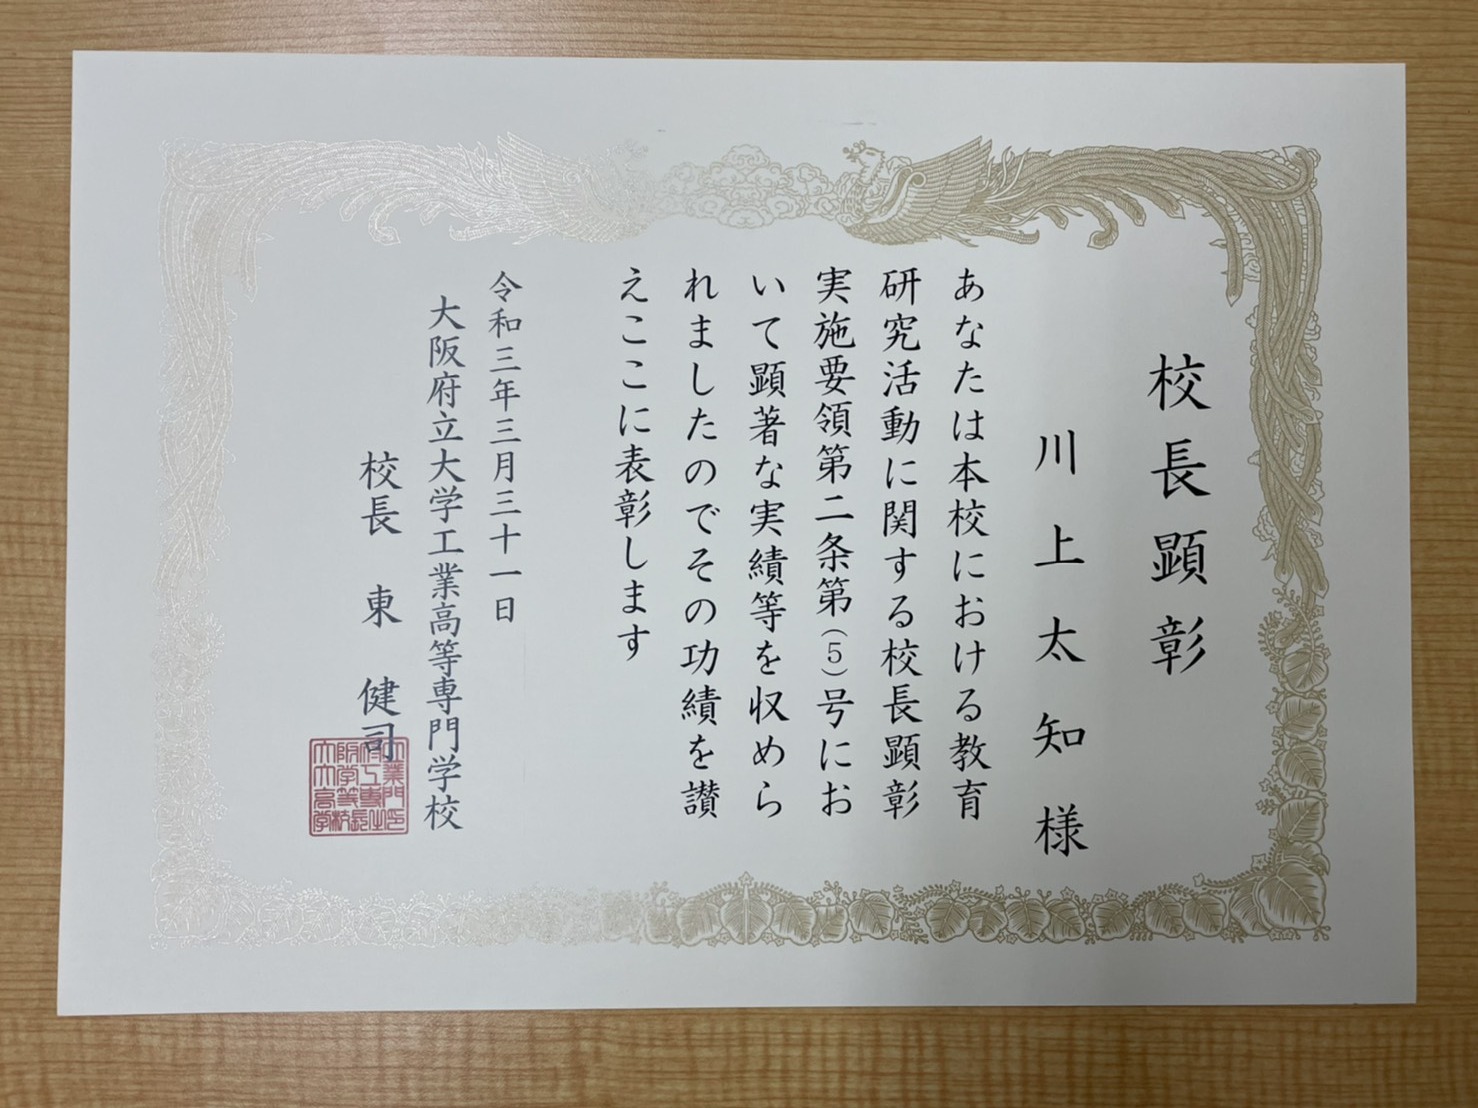 校長顕彰
川上太知様
あなたは本校における教育
研究活動に関する校長顕彰
実施要領第二条第(5)号にお
いて顕著な実績等を収めら
れましたのでその功績を讃
えここに表彰します
令和三年三月三十一日
大阪府立大学工業高等専門学校
校長 東 健司